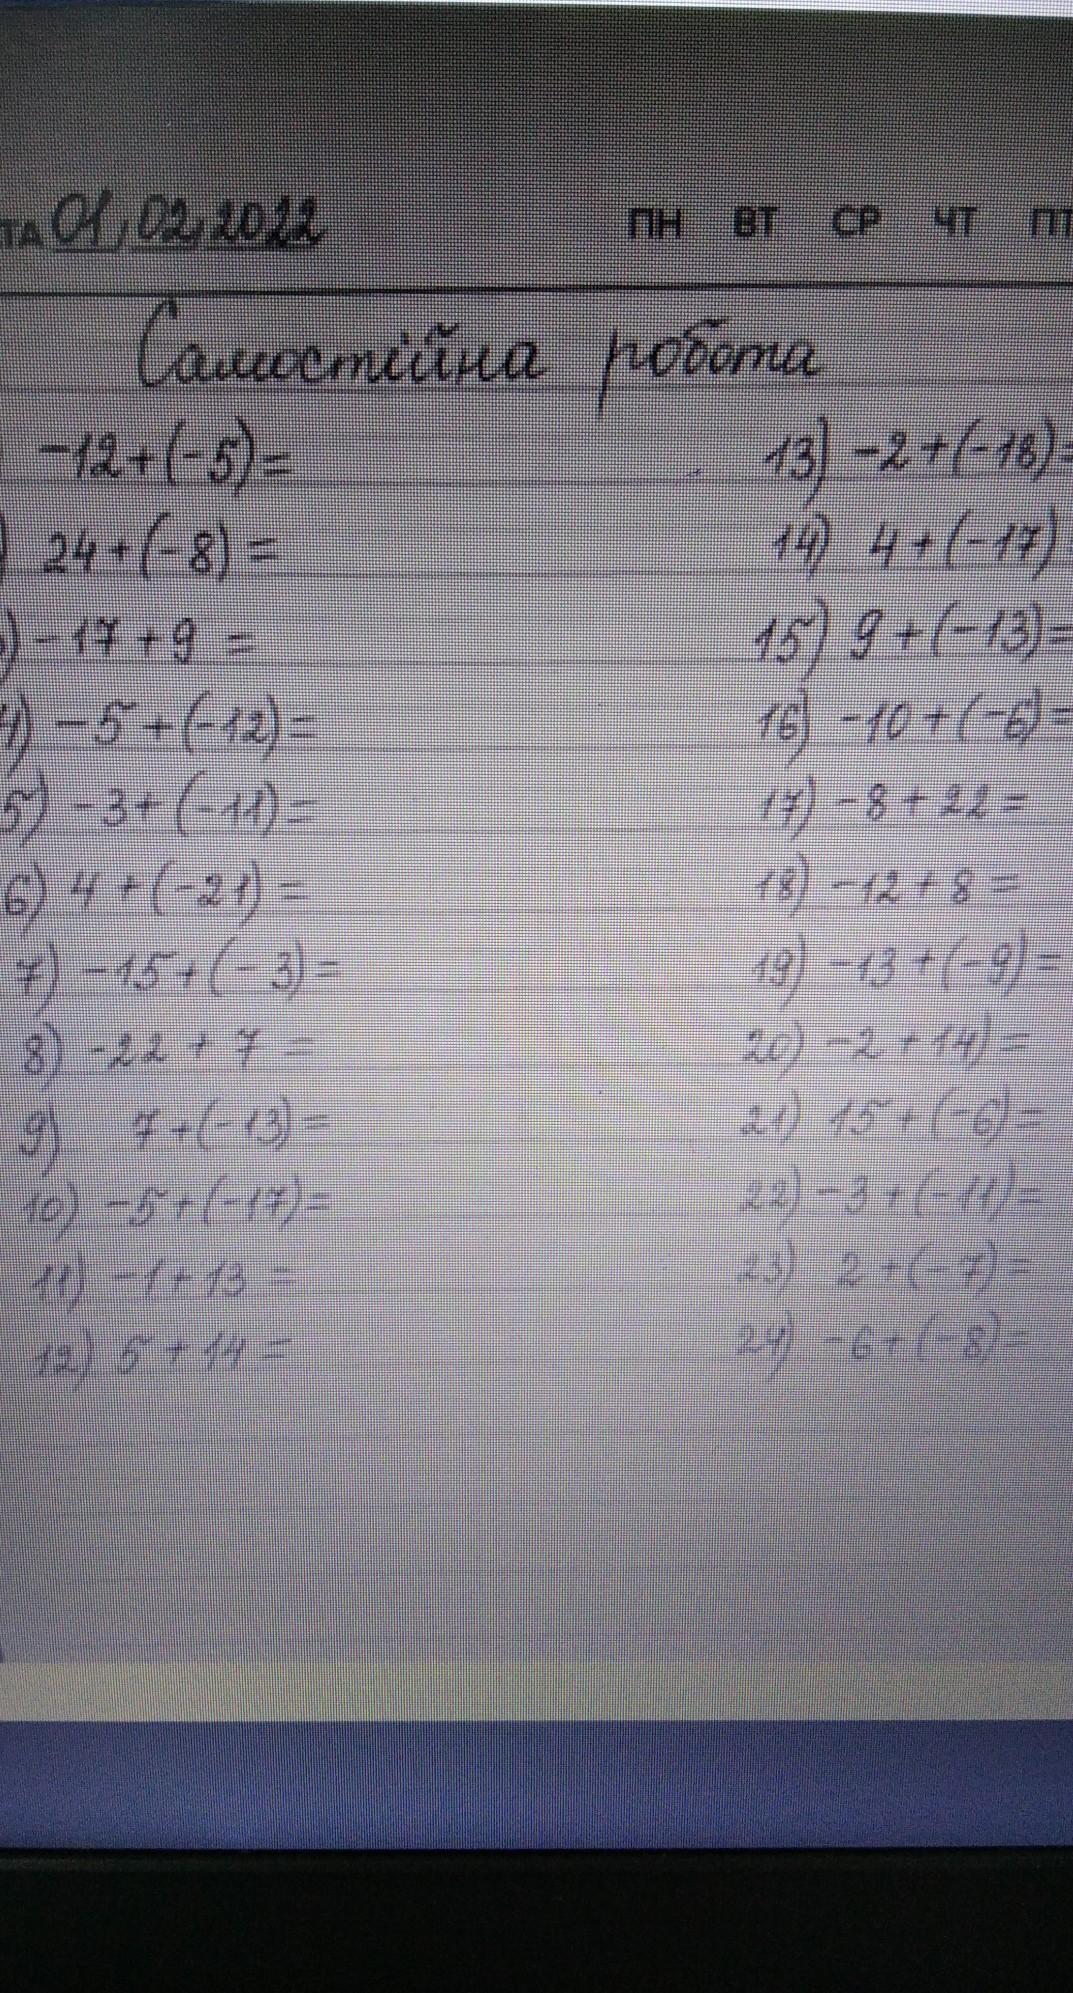 ТА 01,02,2022 ПН ВТ СР ЧТ ПТ
Самостійна робота
-12+(-5)=
) 24+(-8)=
) -17+9 =
4) -5+(-12)=
5) -3+(-11)=
6) 4+(-21)=
7) -15+(-3)=
8) -22+7 =
9) 7+(-13)=
10) -5+(-17)=
11) -1+13 =
12) 5+14=
13) -2+(-18)=
14) 4+(-17)
15) 9+(-13)=
16) -10+(-6)=
17) -8+22=
18) -12+8=
19) -13+(-9)=
20) -2+14)=
21) 15+(-6)=
22) -3+(-11)=
23) 2+(-7)=
24) -6+(-8)=